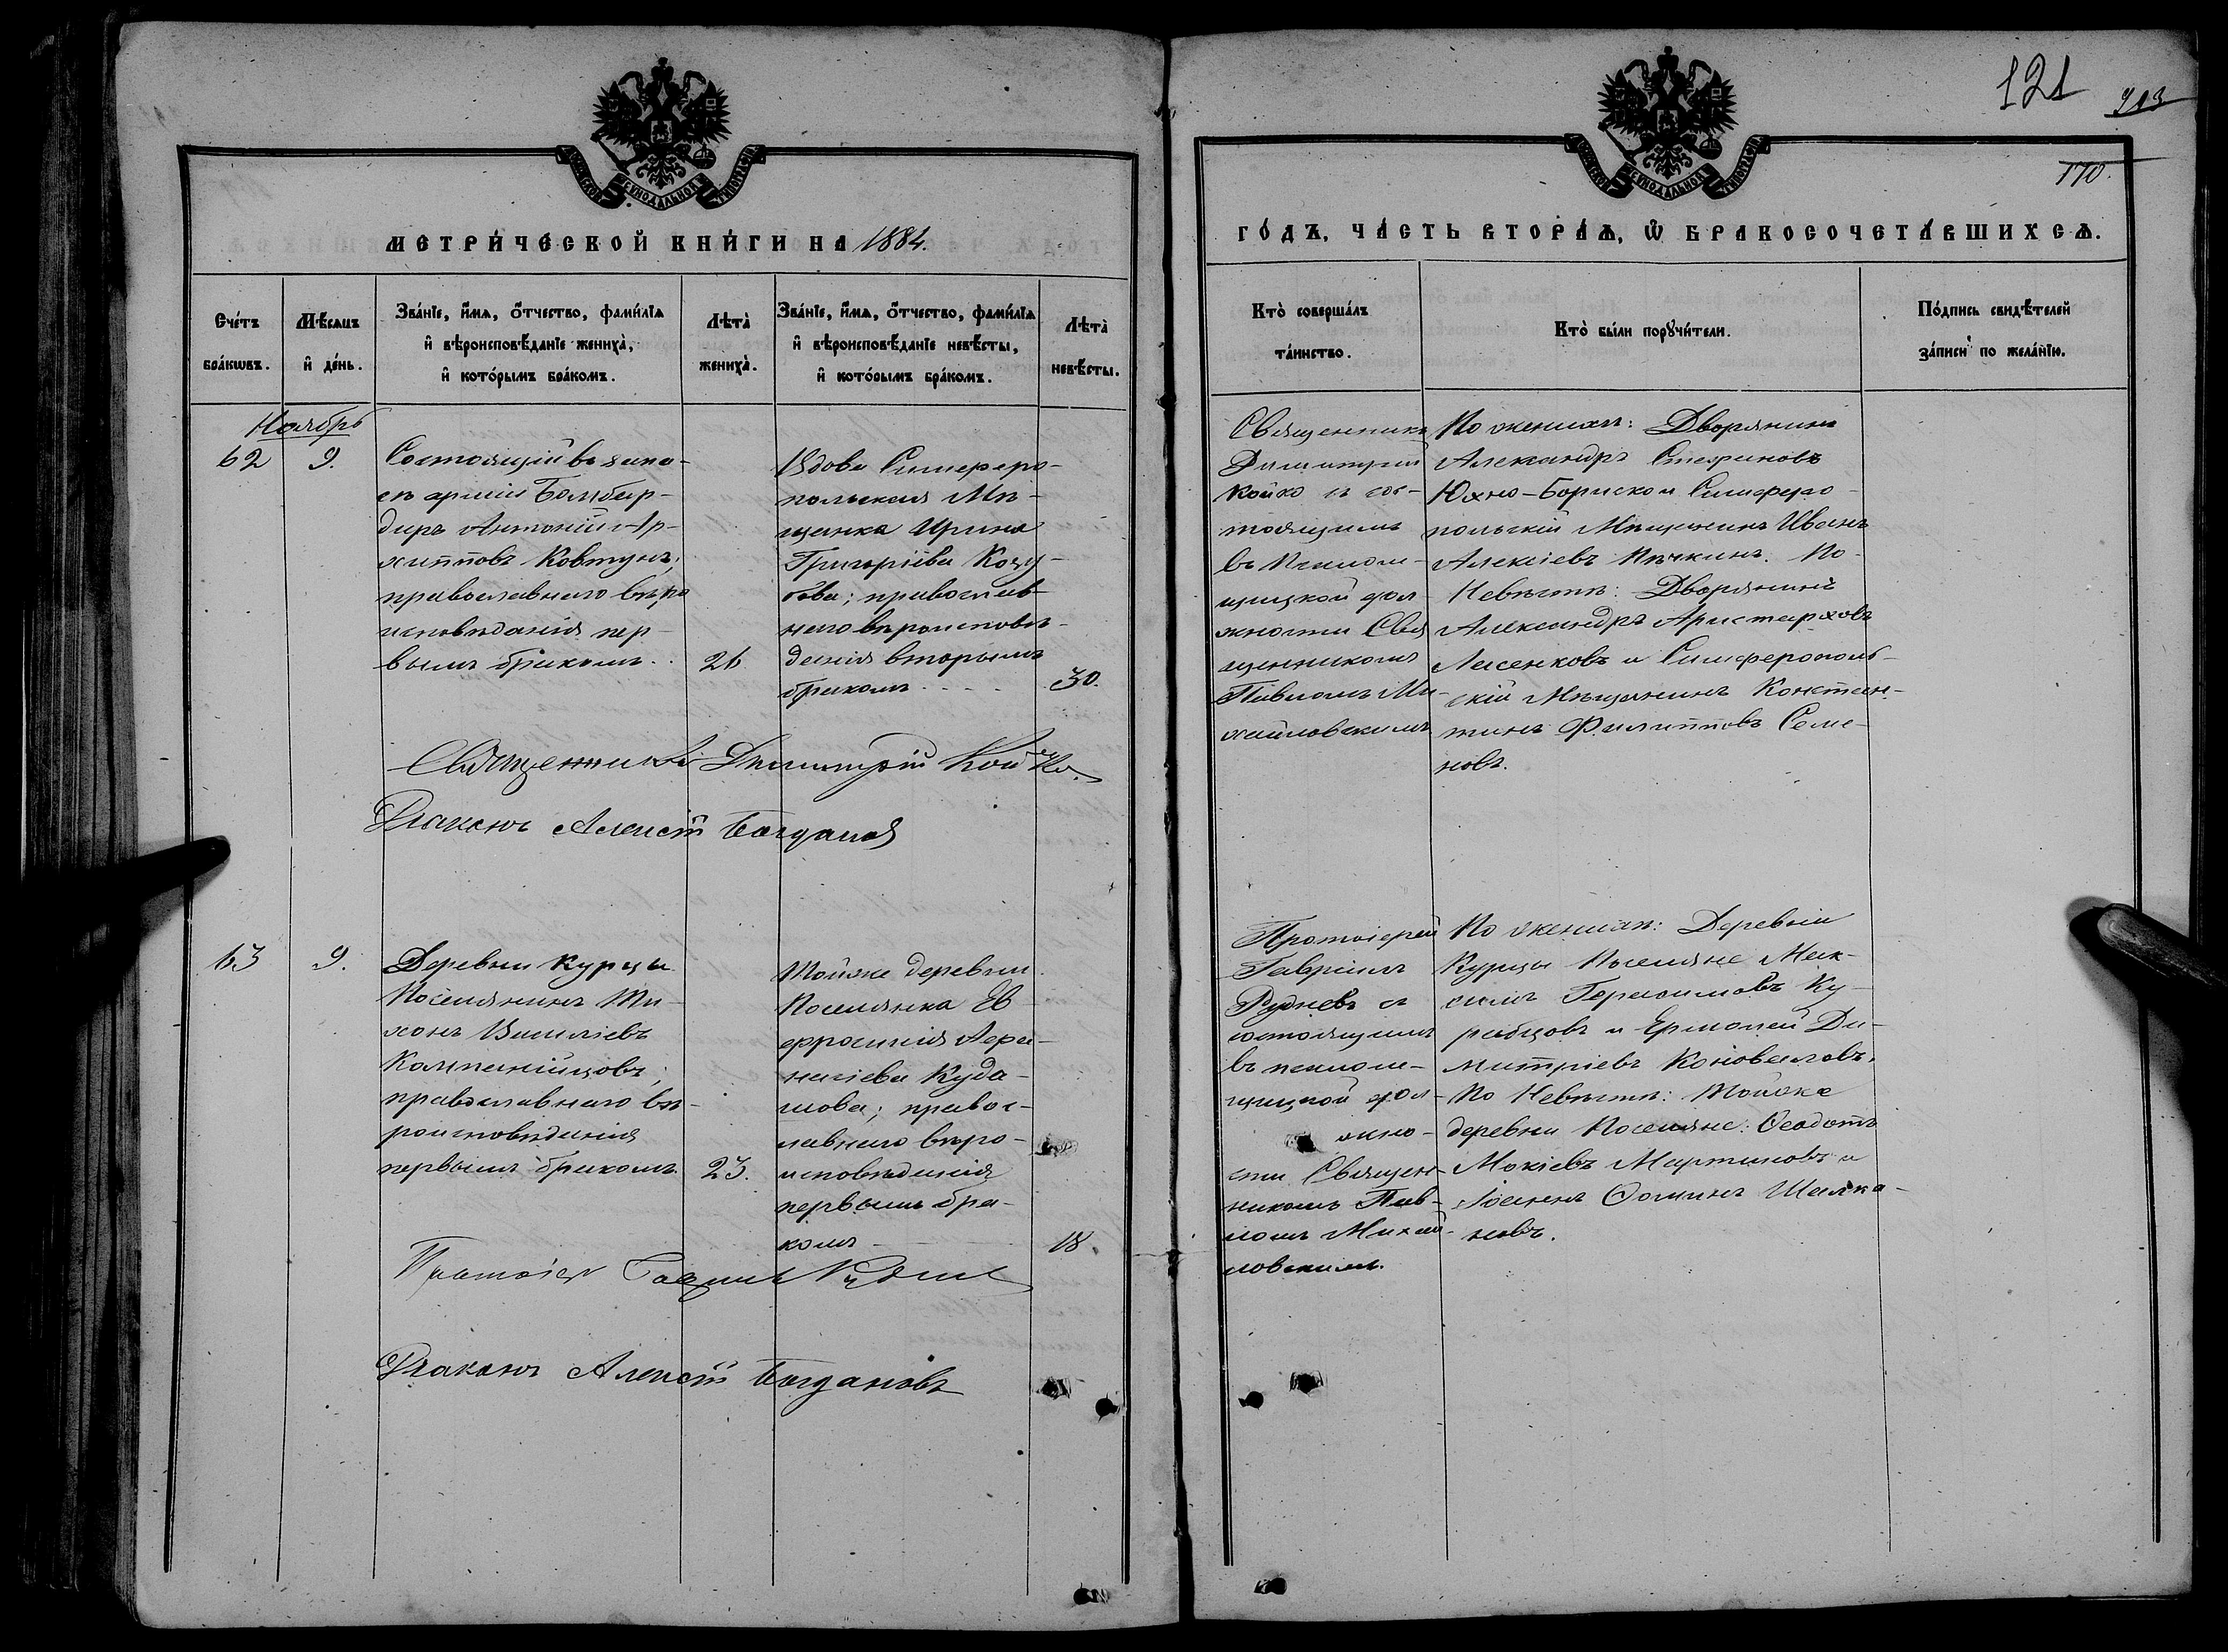 121
913
170.
МЕТРИ́ЧЕСКОЙ КНИ́ГИ НА 1884.
ГО́ДЪ, ЧА́СТЬ ВТОРА́Я, Ѡ БРАКОСОЧЕТА́ВШИХСЯ.
Сче́тъ
бра́кѡвъ.
Мѣ́сяцъ
и҆ де́нь.
Зва́нїе, и҆́мя, ѻ҆́тчество, фами́лїя
и҆ вѣроисповѣ́данїе жениха̀,
и҆ кото́рымъ бра́комъ.
Лѣта̀
жениха̀.
Зва́нїе, и҆́мя, ѻ҆́тчество, фами́лїя
и҆ вѣроисповѣ́данїе невѣ́сты,
и҆ кото́рымъ бра́комъ.
Лѣта̀
невѣ́сты.
Кто̀ соверша́лъ
та́инство.
Кто̀ бы́ли порꙋчи́тели.
По́дпись свидѣ́телей
за́писи по жела́нїю.
Ноябрь
62
9.
Состоящій въ запа-
сѣ арміи Бомбир-
диръ Антоній Ар-
хипповъ Ковтунъ;
православнаго вѣро
исповѣданія пер-
вымъ бракомъ.
26
Вдова Симферо-
польская Мѣ-
щанка Ирина
Григоріева Козу-
бова; православ-
наго вѣроисповѣ-
данія вторымъ
бракомъ
30.
Священникъ
Димитрій
Койко съ сос-
тоящимъ
въ Псаломщ-
щицкой дол-
жности Свя
щенникомъ
Павломъ Ми-
хайловскимъ
По женихѣ: Дворянинъ
Александръ Стефановъ
Юхно-Бориско и Симферо-
польскій Мѣщанинъ Иванъ
Алексіевъ Пѣчкинъ. По-
Невѣстѣ: Дворянинъ
Александръ Аристарховъ
Лисенковъ и Симферополь-
скій Мѣщанинъ Констан-
тинъ Филипповъ Семе-
новъ.
Священникъ Димитрій Койко.
Діаконъ Алексій Богдановъ
63
9.
Деревни Курцы
Поселянинъ Ти-
хонъ Василіевъ
Компанійцовъ;
православнаго вѣ-
роисповѣданія
первымъ бракомъ
23.
Тойже деревни
Поселянка Ев
фросинія Афа-
насіева Куда-
шова; правос-
лавнаго вѣро-
исповѣданія
первымъ бра-
комъ
18.
Протоіерей
Гавріилъ
Рудневъ съ
состоящимъ
въ псалом-
щицкой дол-
жно-
сти Священ-
никомъ Пав-
ломъ Михай-
ловскимъ.
По женихѣ: Деревни
Курцы Поселяне Мак-
симъ Герасимовъ Ку-
рабцовъ и Ермолай Ди-
митріевъ Коноваловъ.
По Невѣстѣ: Тойже
деревни Поселяне: Ѳеодотъ
Мокіевъ Мартиновъ и
Іоаннъ Ѳоминъ Шалка-
новъ.
Протоіер Гавріилъ Рудневъ
Діаконъ Алексій Богдановъ